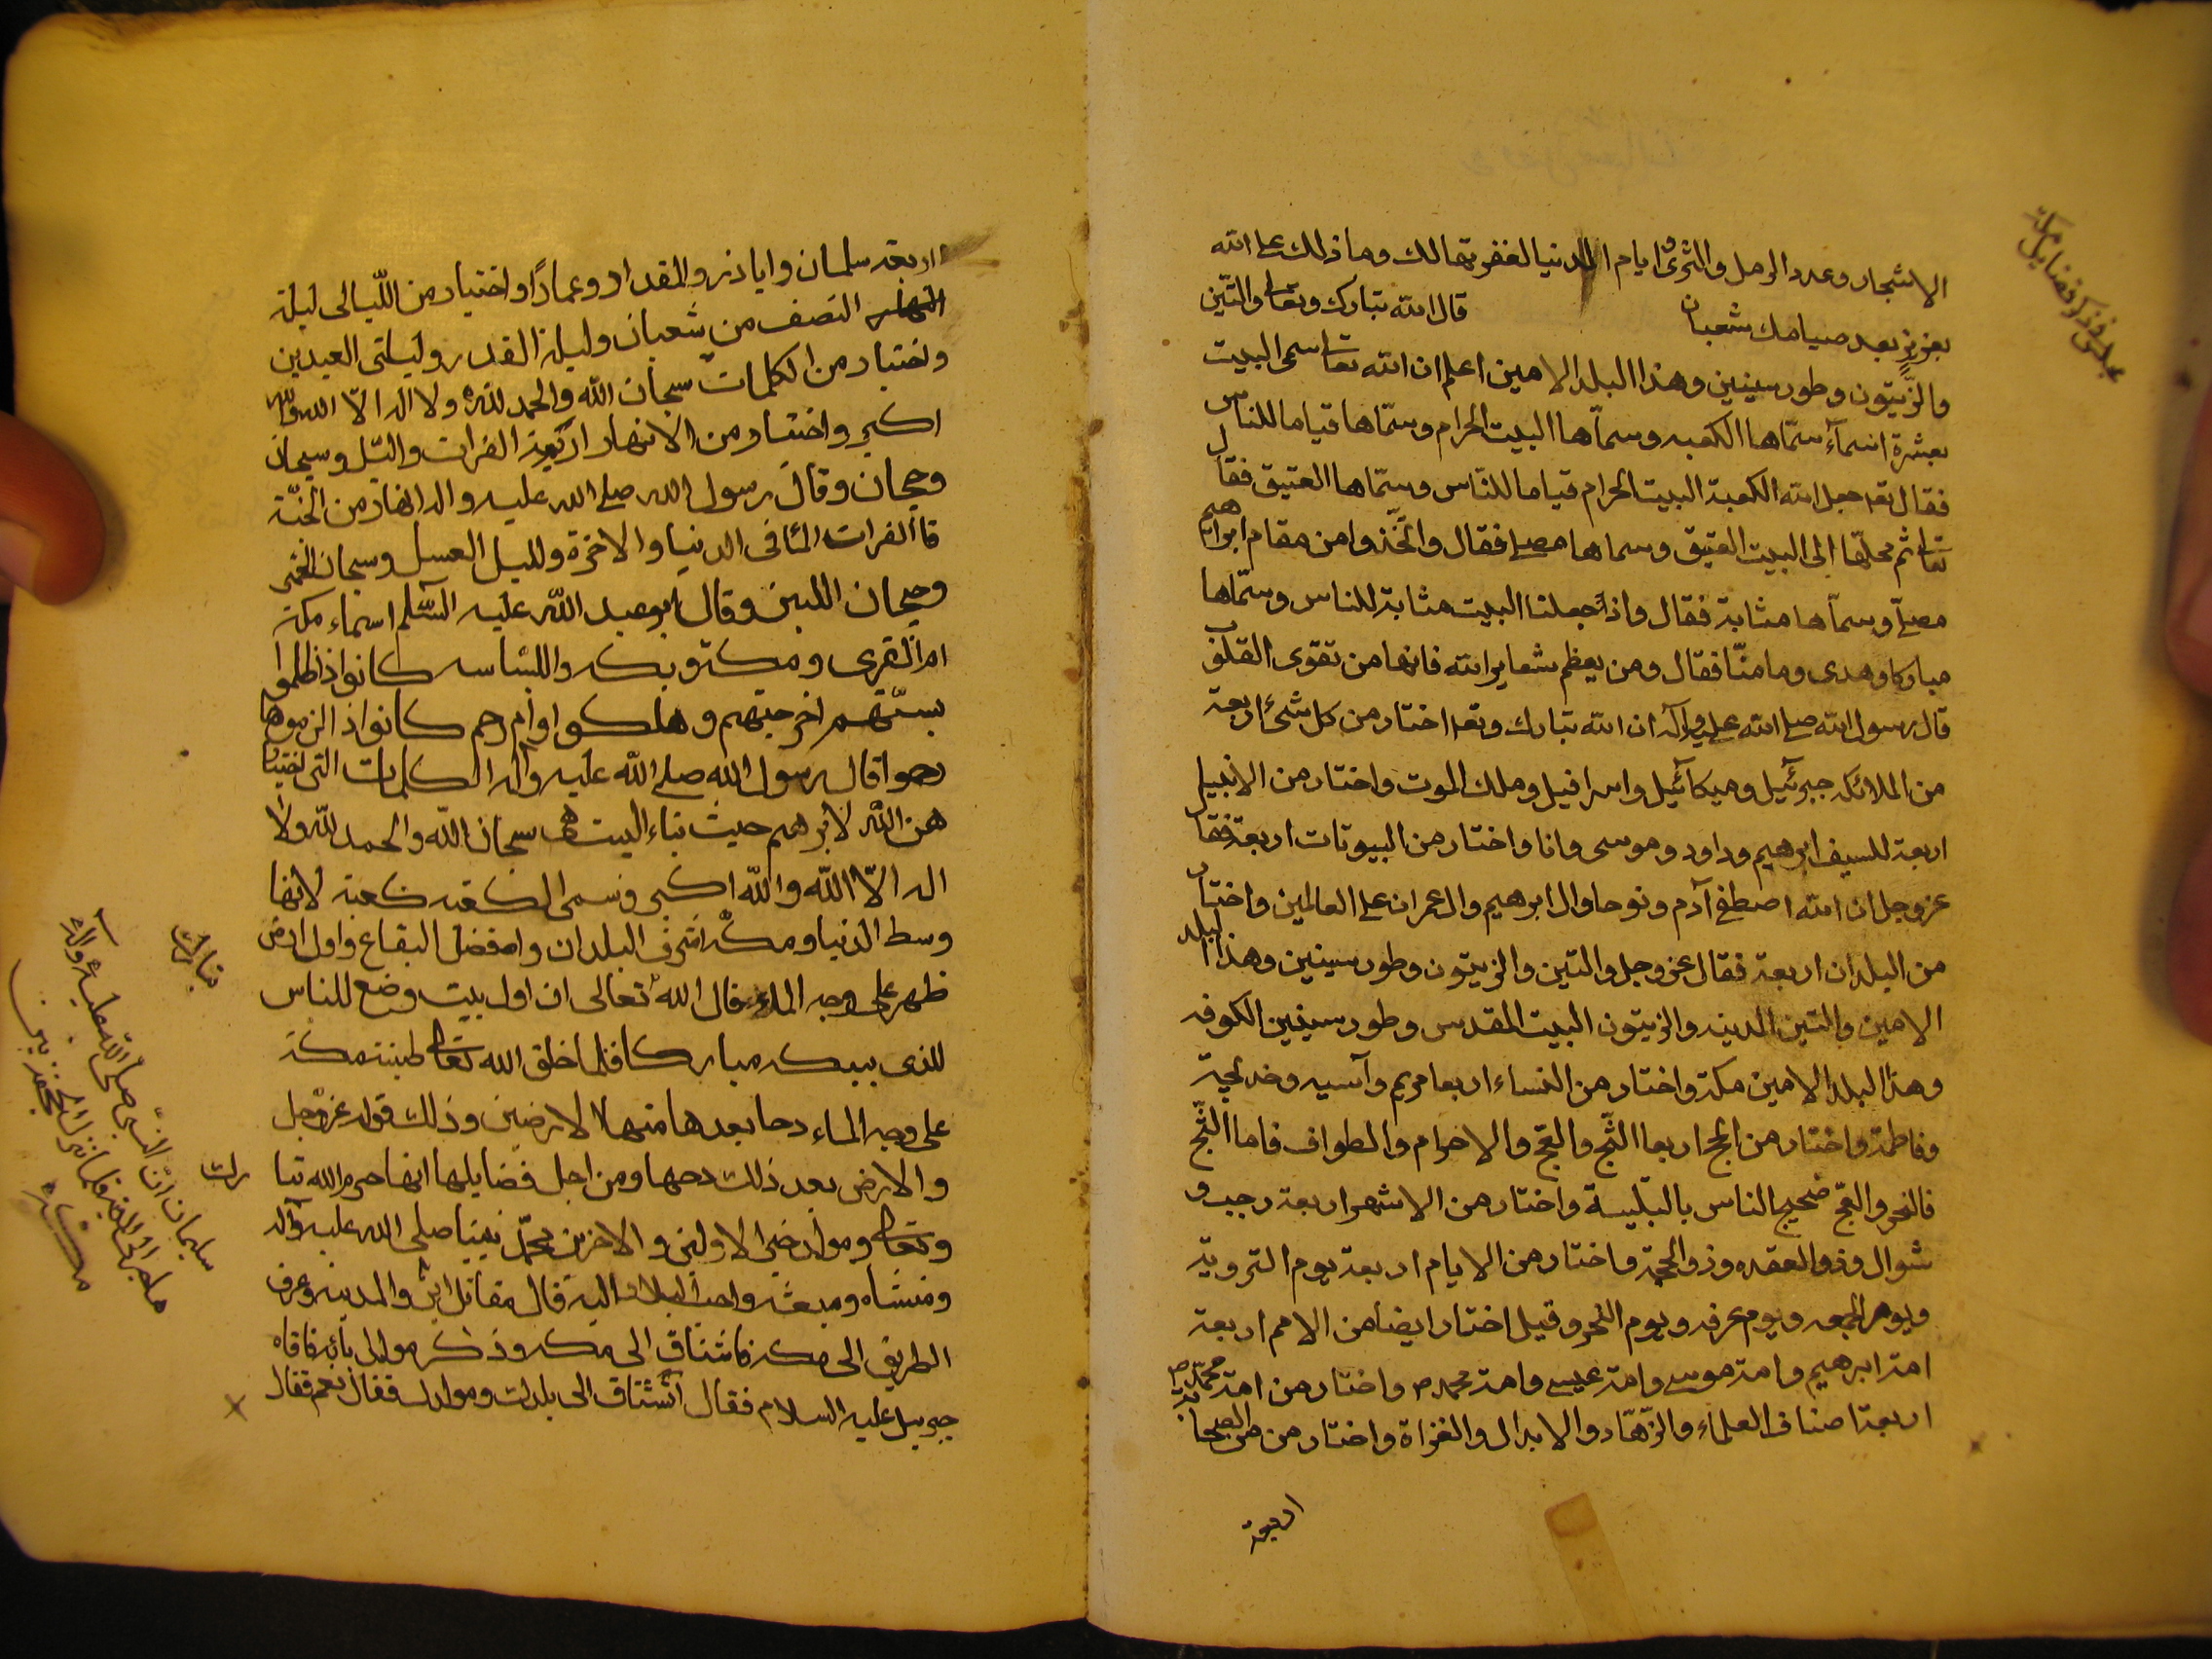 الاشجار وعدد الرمل والثرى وايام الدنيا لغفرتها لك وما ذلك على الله
بعزيز بعد صيامك شعبان قال الله تبارك وتعالى والتين
والزيتون وطور سينين وهذا البلد الامين اعلم ان الله تعا سمى البيت
بعشرة اسمآء سمّاها الكعبه وسماها البيت الحرام وسمّاها قياما للناس
فقال تعه جعل الله الكعبة البيت الحرام قياما للناس وسمّاها العتيق فقال
تعا ثم محلّها الى البيت العتيق وسماها مصلى فقال واتّخذوا من مقام ابراهيم
مصلّى وسمّاها مثابة فقال واذ جعلنا البيت مثابة للناس وسمّاها
مباركا وهدى وما منّا فقال ومن يعظم شعاير الله فانها من تقوى القلوب
قال رسول الله صلى الله عليه وآله ان الله تبارك وتعه اختار من كل شئ اربعة
من الملائكه جبرئيل وميكائيل واسرافيل وملك الموت واختار من الانبيا
اربعة للسيف ابرهيم وداود وموسى وانا واختار من البيوتات اربعة فقال
عزوجل ان الله اصطفى آدم ونوحا وال ابرهيم وال عمران على العالمين واختار
من البلدان اربعة فقال عزوجل والتين والزيتون وطور سينين وهذا البلد
الامين والتين المدينه والزيتون البيت المقدس وطور سينين الكوفه
وهذا البلد الامين مكة واختار من النساء اربعا مريم وآسيه وخديجة
وفاطمة واختار من الحج اربعا الثّج والعج والاحرام والطواف فاما الثّج
فالنحر والعج ضجيج الناس بالتلبية واختار من الاشهر اربعة رجب و
شوال وذو القعده وذو الحجة واختار من الايام اربعة يوم التروية
ويوم الجمعه ويوم عرفه ويوم النحر وقيل اختار ايضا من الامم اربعة
امة ابرهيم وامة موسى وامة عيسى وامة محمد ص واختار من امة محمّد ص
اربعة اصناف العلماء والزّهّاد والابدال والغزاة واختار من من الصحابة
اربعة
اربعه سلمان واباذر والمقداد وعمارًا واختيار من اللّيالى ليلة
النصف من شعبان وليلة القدر وليلتى العيدين
واختيار من الكلمات سبحان الله والحمد لله ولا اله الّا الله والله
اكبر واختيار من الانهار اربعة الفرات والنيل وسيحان
وجيحان وقال رسول الله صلى الله عليه واله انهار من الجنّة
فا الفرات الما فى الدنيا والاخرة والنيل العسل وسيحان الخمر
وجيحان اللبن وقال ابو عبد الله عليه السّلم اسماء مكة
ام القرى ومكة وبكه والبساسه كانوا اذا ظلموا
بستهم اخرجتهم وهلكوا وام رحم كانوا اذا لزموها
رحموا قال رسول الله صلى الله عليه واله الكلمات التى اختيار
هن الله لابرهيم حيث بناء البيت هى سبحان الله والحمد لله ولا
اله الّا الله والله اكبر وسمى الكعبه كعبة لانها
وسط الدنيا ومكّه اشرف البلدان وافضل البقاع واول ارض
ظهر على وجه الماء قال الله تعالى ان اول بيت وضع للناس
للذى ببكه مباركا فلما خلق الله تعالى طينة مكة
على وجه الماء دحا بعدها منها الارضين وذلك قوله عزوجل
والارض بعد ذلك دحها ومن اجل فضايلها انها حرم الله تبا
وتعالى ومولد خير الاولين والاخرين محمّد نبينا صلى الله عليه وآله
ومنشاه ومبعثه واحب البلاد اليه قال مقاتل والمدينه وعرف
الطريق الى مكه فاشتاق الى مكه وذكر مولد ابائه فاتاه
جبرييل عليه السلام فقال اتشتاق الى بلدك ومولدك فقال نعم فقال